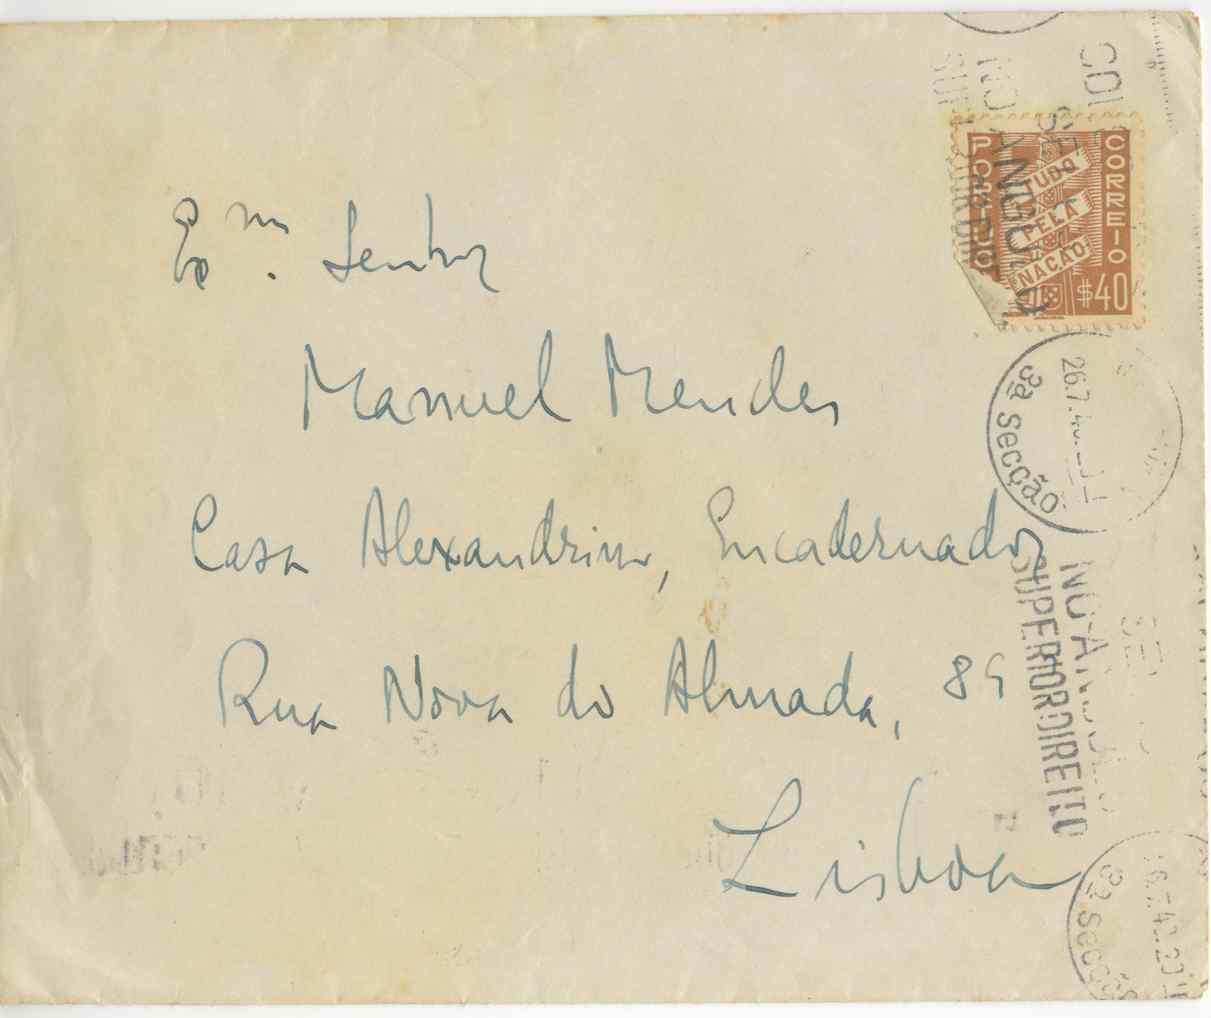 Exmo. Senhor
Manuel Mendes
Casa Alexandrino, Encadernador
Rua Nova do Almada, 89
Lisboa
CORREIO
PORTUGAL
TUDO
PELA
NAÇÃO
$40
SE
NO ANGULO
26.7.40.20
3ª Secção
NO ANGULO
SUPERIOR DIREITO
3ª Secção